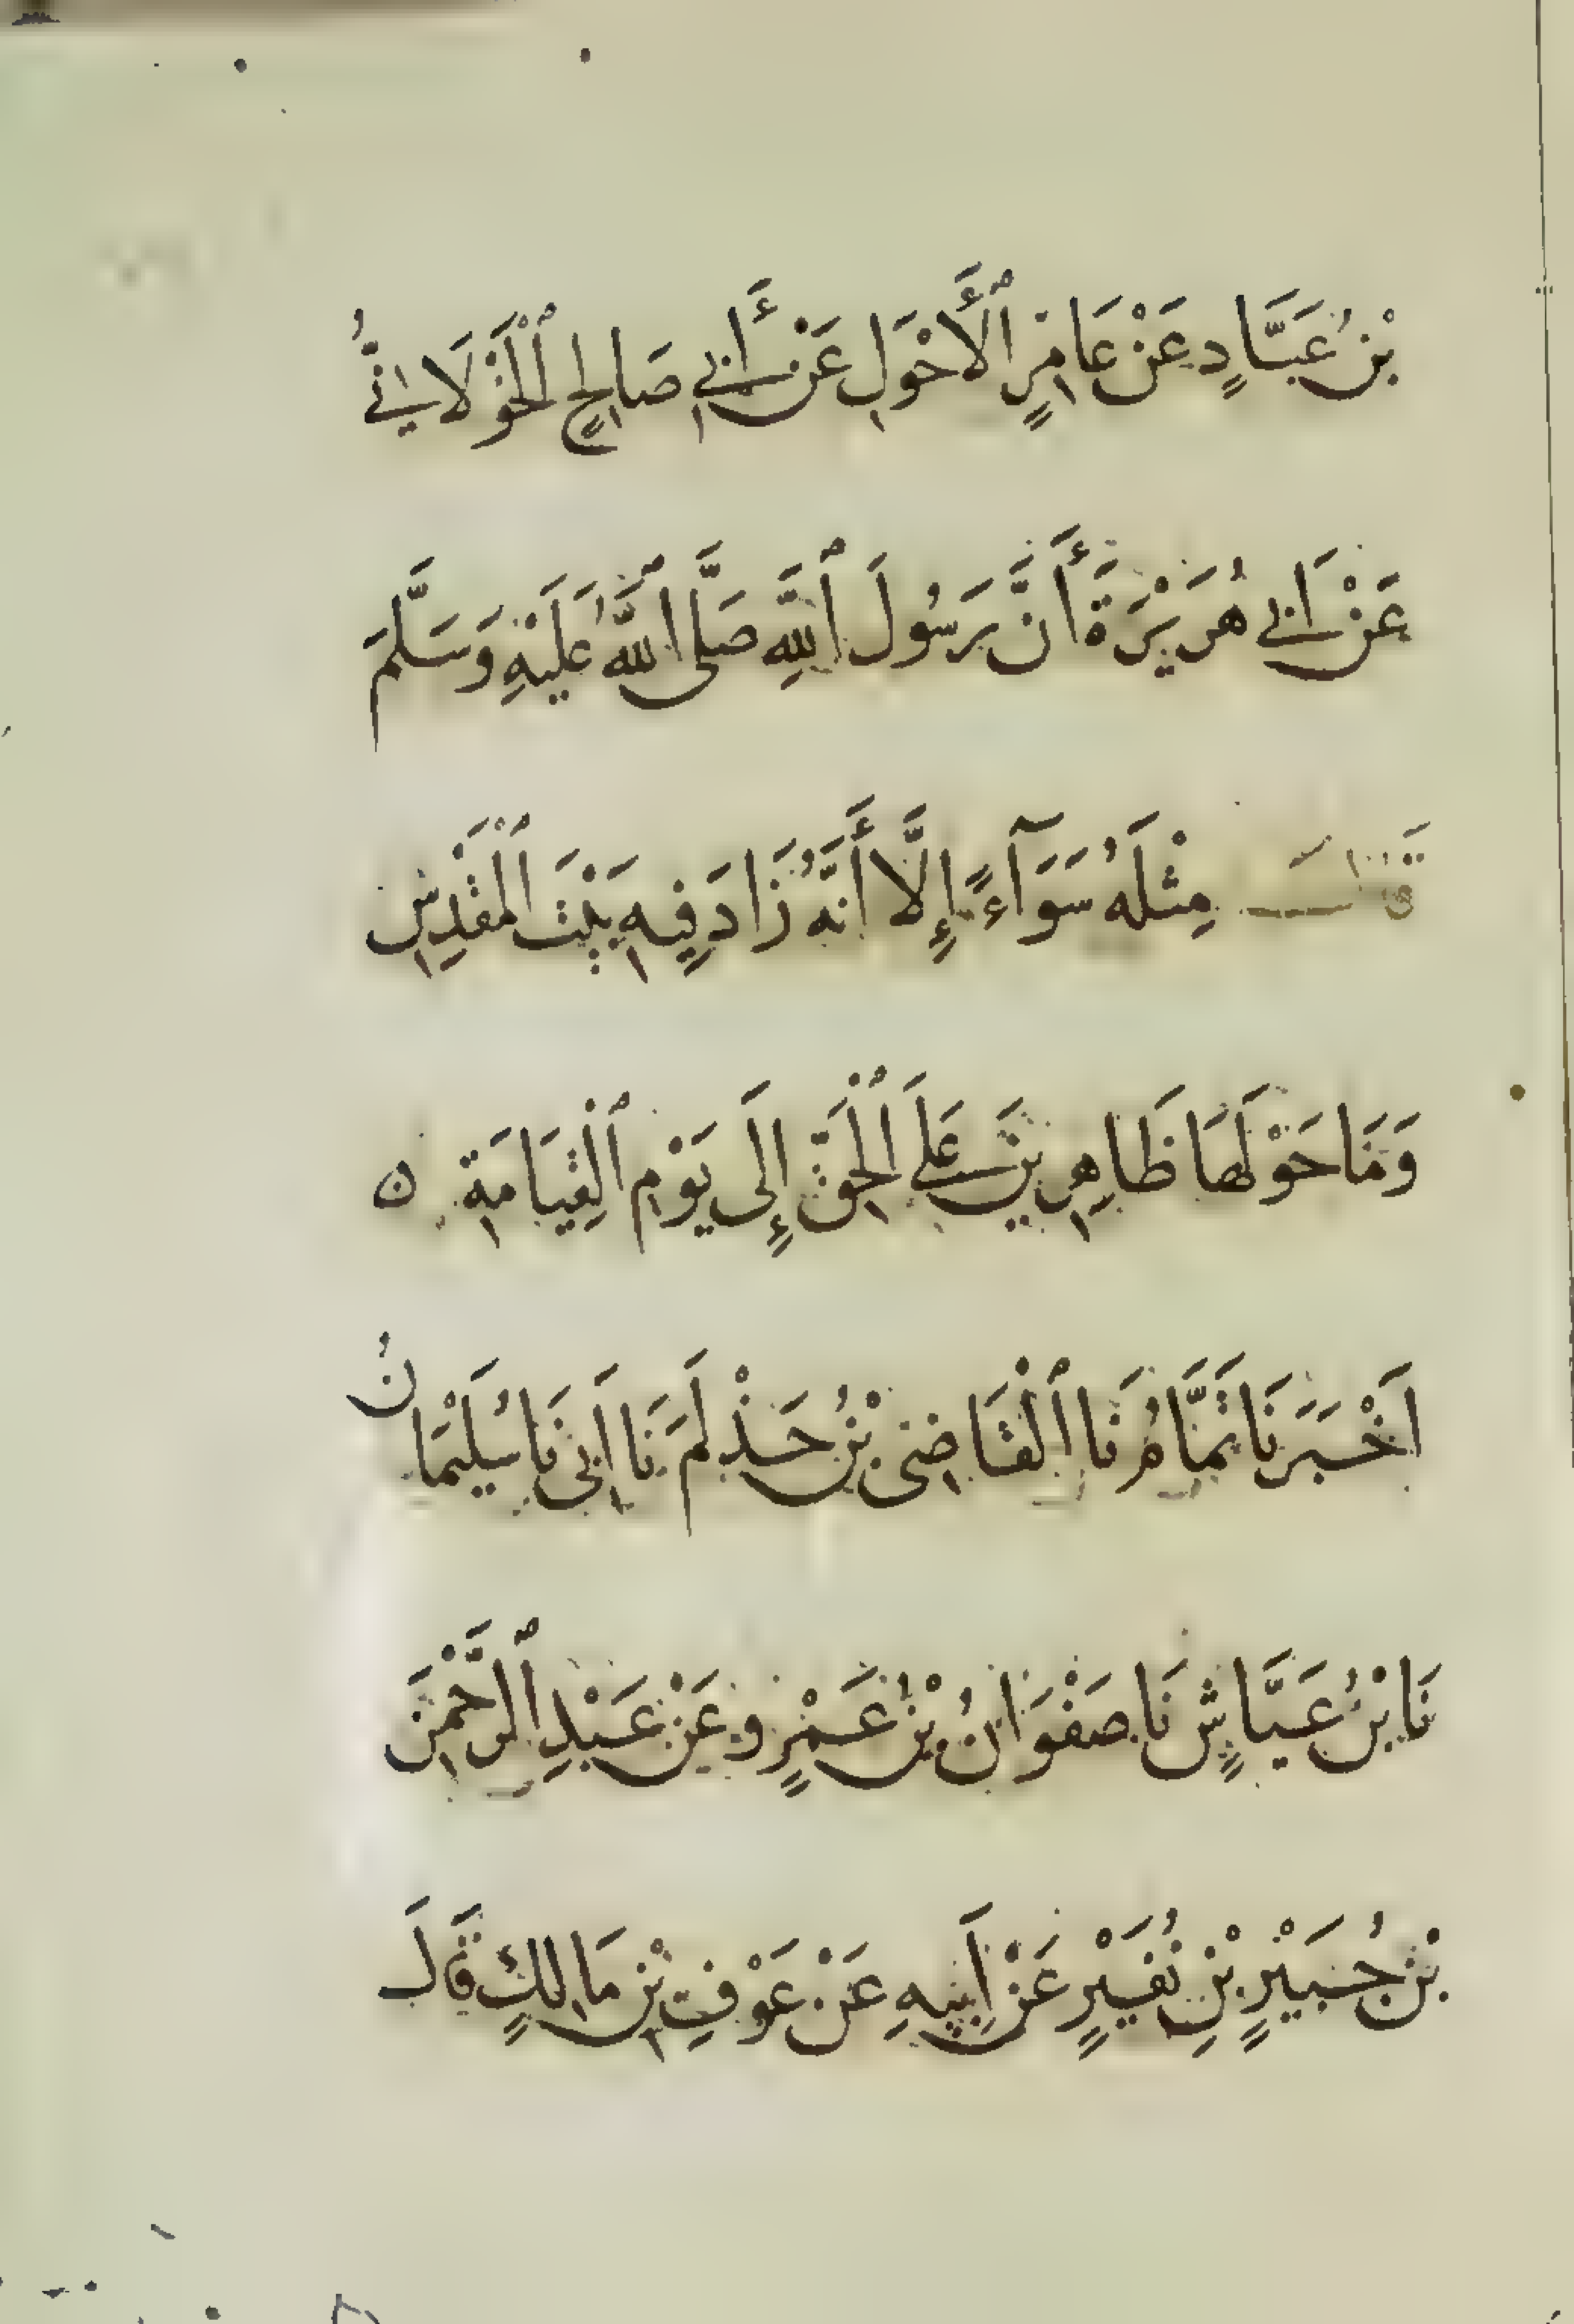 بْنُ عَبَّادٍ عَنْ عَامِرٍ ٱلْأَحْوَلِ عَنْ أَبِي صَالِحٍ ٱلْخَوْلَانِيُّ
عَنْ اَبِي هُرَيْرَةَ أَنَّ رَسُولَ ٱللَّهِ صَلَّى ٱللَّهُ عَلَيْهِ وَسَلَّمَ
قَالَ مِثْلَهُ سَوَآءً إِلَّا أَنَّهُ زَادَ فِيهِ بَيْتَ ٱلْمَقْدِسِ
وَمَا حَوْلَهَا ظَاهِرِينَ عَلَى ٱلْحَقِّ إِلَى يَوْمِ ٱلْقِيَامَةِ ن
اَخْبَرَنَا تَمَّامُ نَا ٱلْقَاضِي بْنُ حَذْلَمَ نَا اَبِي نَا سُلَيْمَانُ
نَا بْنُ عَيَّاشٍ نَا صَفْوَانُ بْنُ عَمْرٍو عَنْ عَبْدِ ٱلرَّحْمَنِ
بْنِ جُبَيْرٍ بْنِ نُفَيْرٍ عَنْ اَبِيهِ عَنْ عَوْفِ بْنِ مَالِكٍ قَالَ